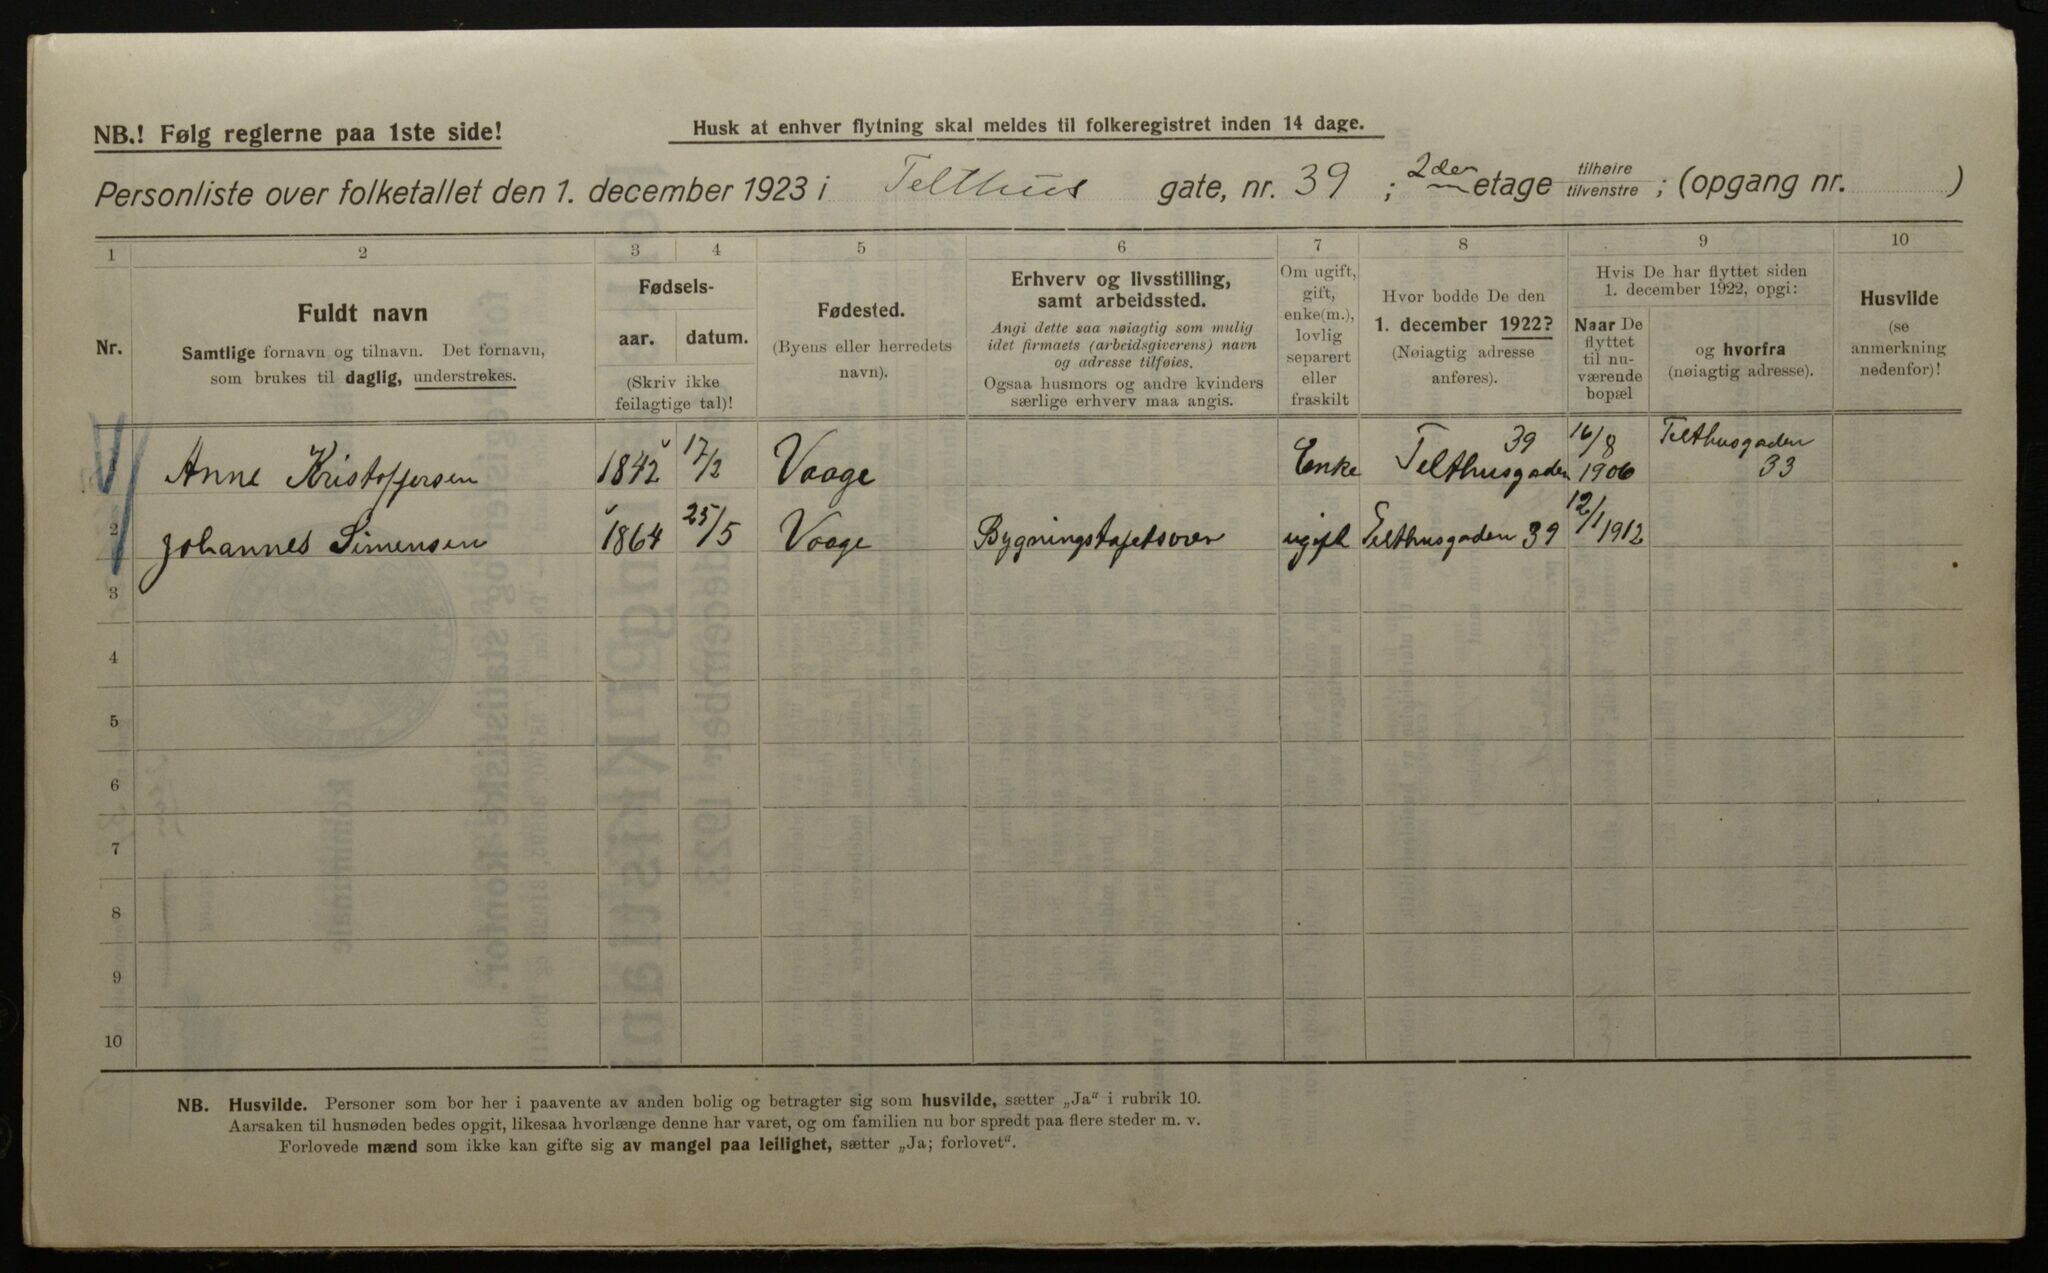 NB.! Følg reglerne paa 1ste side!
Husk at enhver flytning skal meldes til folkeregistret inden 14 dage.
Personliste over folketallet den 1. december 1923 i Telthus gate, nr. 39 ; 2den etage tilhøire tilvenstre ; (opgang nr. )
1 2 3 4 5 6 7 8 9 10
Nr.
Fuldt navn
Samtlige fornavn og tilnavn. Det fornavn,
som brukes til daglig, understrekes.
Fødsels-
aar. datum.
(Skriv ikke
feilagtige tal)!
Fødested.
(Byens eller herredets
navn).
Erhverv og livsstilling,
samt arbeidssted.
Angi dette saa nøiagtig som mulig
idet firmaets (arbeidsgiverens) navn
og adresse tilføies.
Ogsaa husmors og andre kvinders
særlige erhverv maa angis.
Om ugift,
gift,
enke(m.),
lovlig
separert
eller
fraskilt
Hvor bodde De den
1. december 1922?
(Nøiagtig adresse
anføres).
Hvis De har flyttet siden
1. december 1922, opgi:
Naar De
flyttet
til nu-
værende
bopæl
og hvorfra
(nøiagtig adresse).
Husvilde
(se
anmerkning
nedenfor)!
1 Anne Kristoffersen 1842 17/2 Vaage Enke Telthusgaden 39 16/8 1906 Telthusgaden 33
2 Johannes Simensen 1864 25/5 Vaage ugift Telthusgaden 39 12/1 1912
3
4
5
6
7
8
9
10
NB. Husvilde. Personer som bor her i paavente av anden bolig og betragter sig som husvilde, sætter „Ja“ i rubrik 10.
Aarsaken til husnøden bedes opgit, likesaa hvorlænge denne har varet, og om familien nu bor spredt paa flere steder m. v.
Forlovede mænd som ikke kan gifte sig av mangel paa leilighet, sætter „Ja; forlovet“.